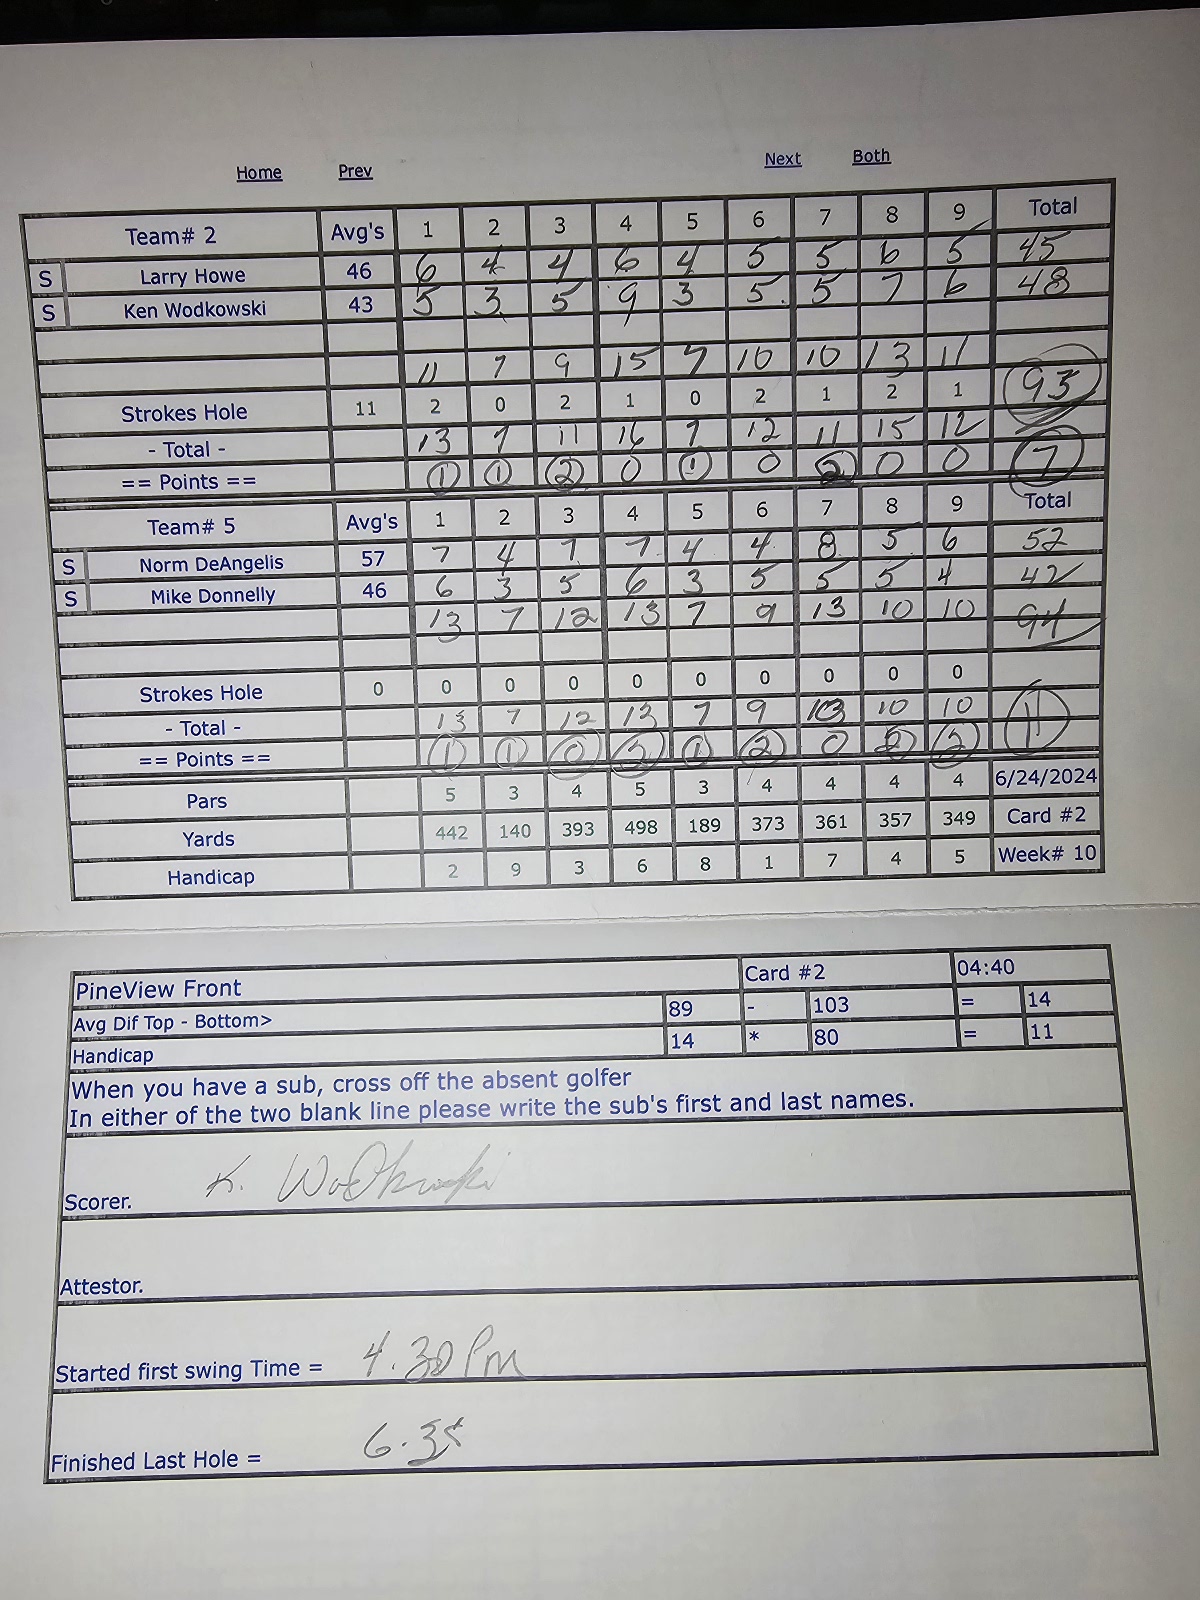 Home Prev Next Both
Team# 2 Avg's 1 2 3 4 5 6 7 8 9 Total
S Larry Howe 46 6 4 4 6 4 5 5 6 5 45
S Ken Wodkowski 43 5 3 5 9 3 5 5 7 6 48
11 7 9 15 7 10 10 13 11 93
Strokes Hole 11 2 0 2 1 0 2 1 2 1
- Total - 13 7 11 16 7 12 11 15 12
== Points == 1 1 2 0 1 0 2 0 0 7
Team# 5 Avg's 1 2 3 4 5 6 7 8 9 Total
S Norm DeAngelis 57 7 4 7 7 4 4 8 5 6 52
S Mike Donnelly 46 6 3 5 6 3 5 5 5 4 42
13 7 12 13 7 9 13 10 10 94
Strokes Hole 0 0 0 0 0 0 0 0 0 0
- Total - 13 7 12 13 7 9 13 10 10
== Points == 1 1 0 2 1 2 0 2 2 11
Pars 5 3 4 5 3 4 4 4 4 6/24/2024
Yards 442 140 393 498 189 373 361 357 349 Card #2
Handicap 2 9 3 6 8 1 7 4 5 Week# 10
PineView Front Card #2 04:40
Avg Dif Top - Bottom> 89 - 103 = 14
Handicap 14 * 80 = 11
When you have a sub, cross off the absent golfer
In either of the two blank line please write the sub's first and last names.
Scorer. K. Wodkowski
Attestor.
Started first swing Time = 4.30 Pm
Finished Last Hole = 6.35